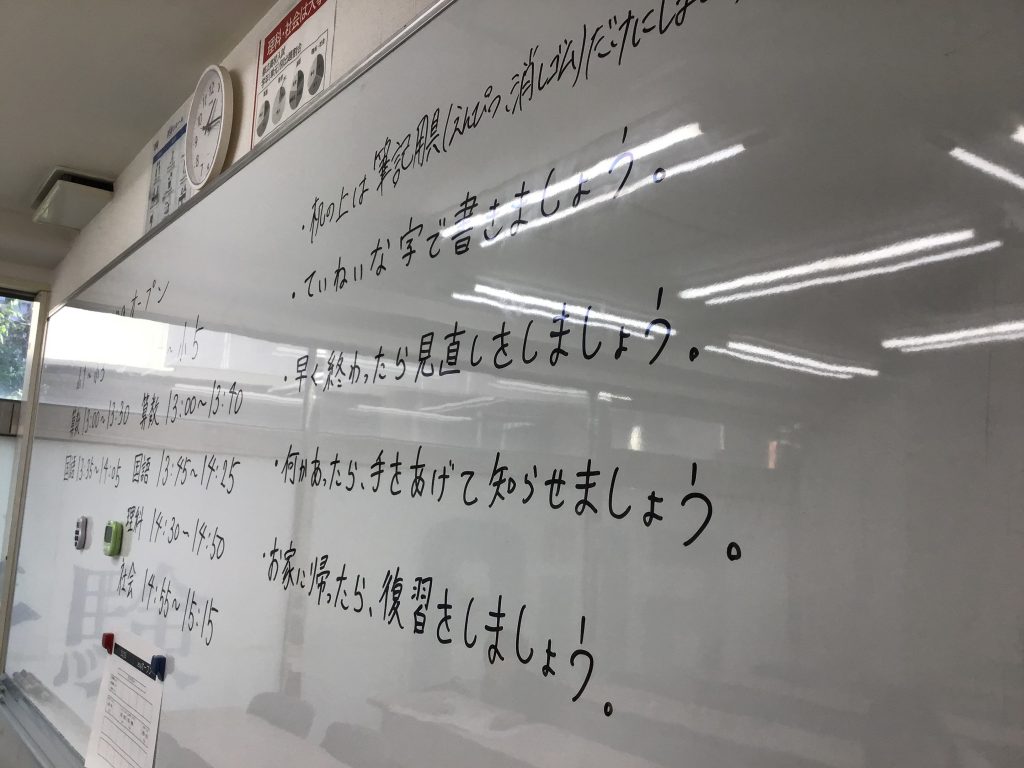 理科・社会は
・机の上は筆記用具(えんぴつ、消しゴム)だけにしま
・ていねいな字で書きましょう。
・早く終わったら見直しをしましょう。
・何かあったら、手をあげて知らせましょう。
・お家に帰ったら、復習をしましょう。
オープン
小5
算数 13:00〜13:30
国語 13:35〜14:05
算数 13:00〜13:40
国語 13:45〜14:25
理科 14:30〜14:50
社会 14:55〜15:15